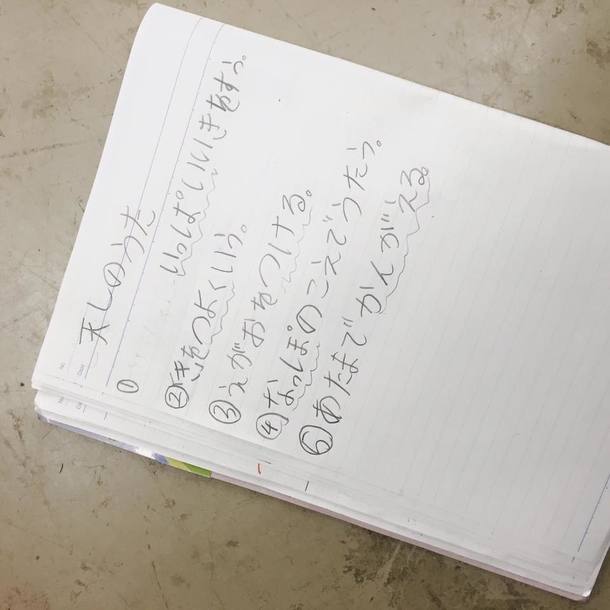 No.
Date
天しのうた
① いっぱいいきをすう。
②きをつよくいう。
③えがおをつける。
④なっぽのこえでうたう。
⑥あたまでかんがえる。